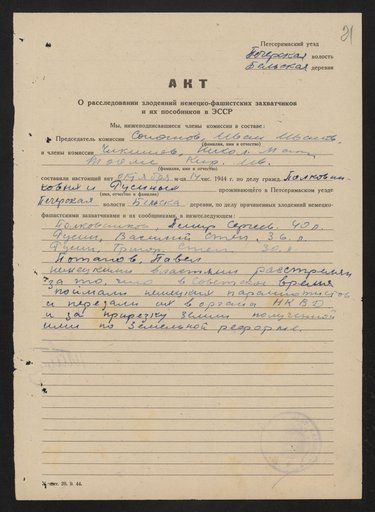 21
Петсеримаский уезд
Печерская волость
Бельская деревня
АКТ
О расследовании злодеяний немецко-фашистских захватчиков
и их пособников в ЭССР
Мы, нижеподписавшиеся члены комиссии в составе:
Председатель комиссии Солдатов, Иван Иванов,
(фамилия, имя и отчество)
и члены комиссии Никол
(фамилия, имя и отчество)
Кир. Ив.
составили настоящий акт октября м-ца 14 чис. 1944 г. по делу гражд. Полковни-
ковых и Фусиных проживающего в Петсеримаском уезде
(имя, отчество и фамилия)
Печерская волость Бельска деревни, по делу причиненных злодеяний немецко-
фашистскими захватчиками и их сообщниками в нижеследующем:
Полковников, Сергеев. 40 л.
Фусин, Василий Степ. 36 л.
Фусин, Григор. Степ. 30 л.
Потапов, Павел
немецкими властями расстреляны
за то, что в Советское время
поймали немецких парашютистов
и передали их в органы НКВД
и за прирезку земли полученной
ими по Земельной реформе.